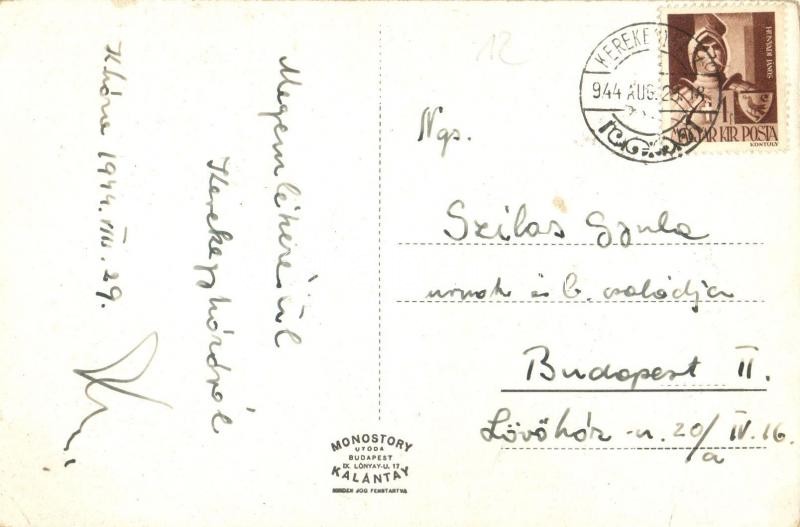 Megemlékezésül
Kerekegyházáról
Kháza 1944. VIII. 29.
12
KEREKE
944 AUG. 29
HUNYADI JÁNOS
1 P
MAGYAR KIR. POSTA
KONTULY
Ngs.
Szilas Gyula
urnak és b. családja
Budapest II.
Lövőház-u. 20/a IV. 16.
MONOSTORY
UTÓDA
BUDAPEST
IX. LÓNYAY-U. 17
KALÁNTAY
MINDEN JOG FENNTARTVA